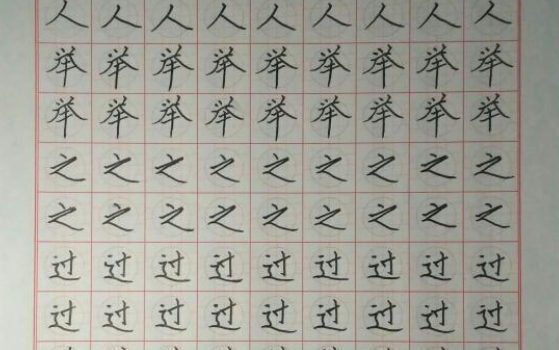 人人人人人人人人人
举举举举举举举举举
举举举举举举举举举
之之之之之之之之之
之之之之之之之之之
过过过过过过过过过
过过过过过过过过过